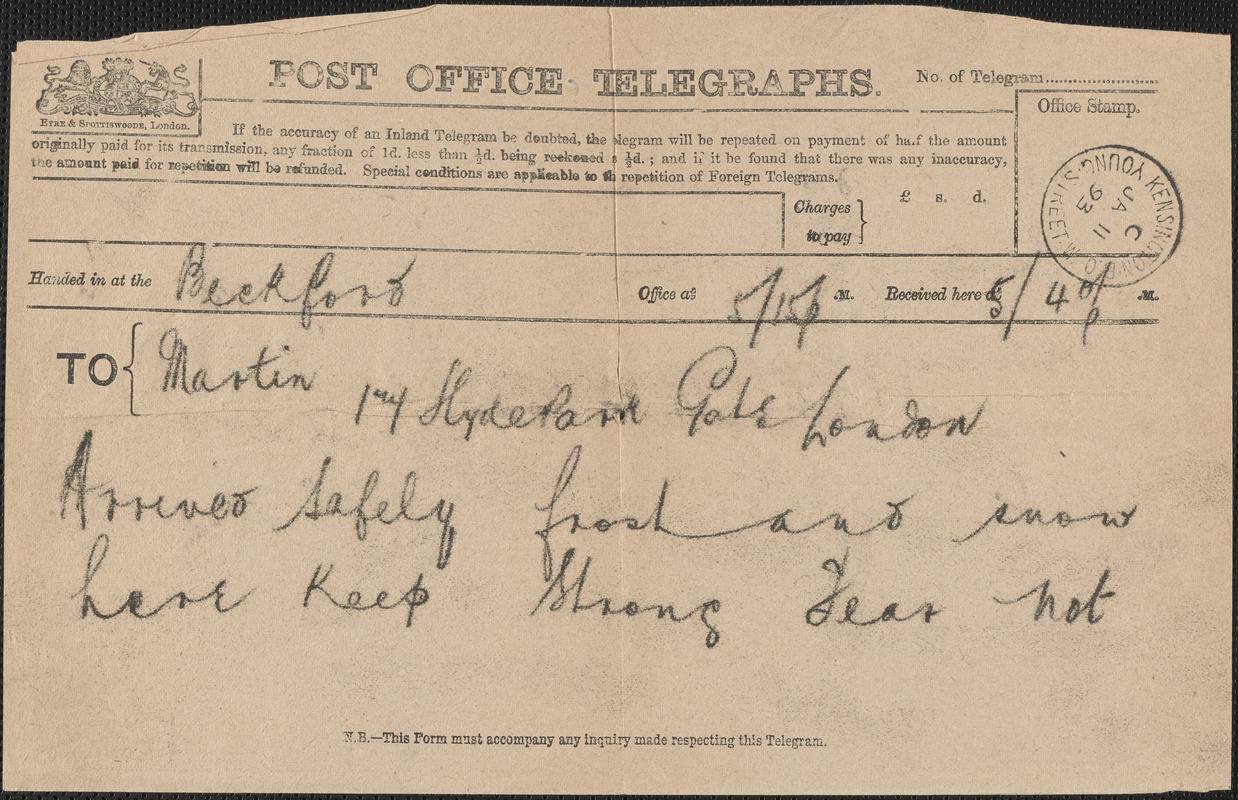 POST OFFICE TELEGRAPHS.
No. of Telegram
EYRE & SPOTTISWOODE, LONDON.
Office Stamp.
If the accuracy of an Inland Telegram be doubted, the legram will be repeated on payment of half the amount
originally paid for its transmission, any fraction of 1d. less than ½d. being reckoned s ½d.; and if it be found that there was any inaccuracy,
the amount paid for repetition will be refunded. Special conditions are applicable to th repetition of Foreign Telegrams.
Charges to pay } £ s. d.
KENSINGTON YOUNG STREET
C
JA 11
93
Handed in at the Beckford Office at 5/15p .M. Received here at 5/40p .M.
TO { Martin
Hyde Park Gate London
Arrived safely frost and snow
here Keep Strong Fear not
N.B.—This Form must accompany any inquiry made respecting this Telegram.